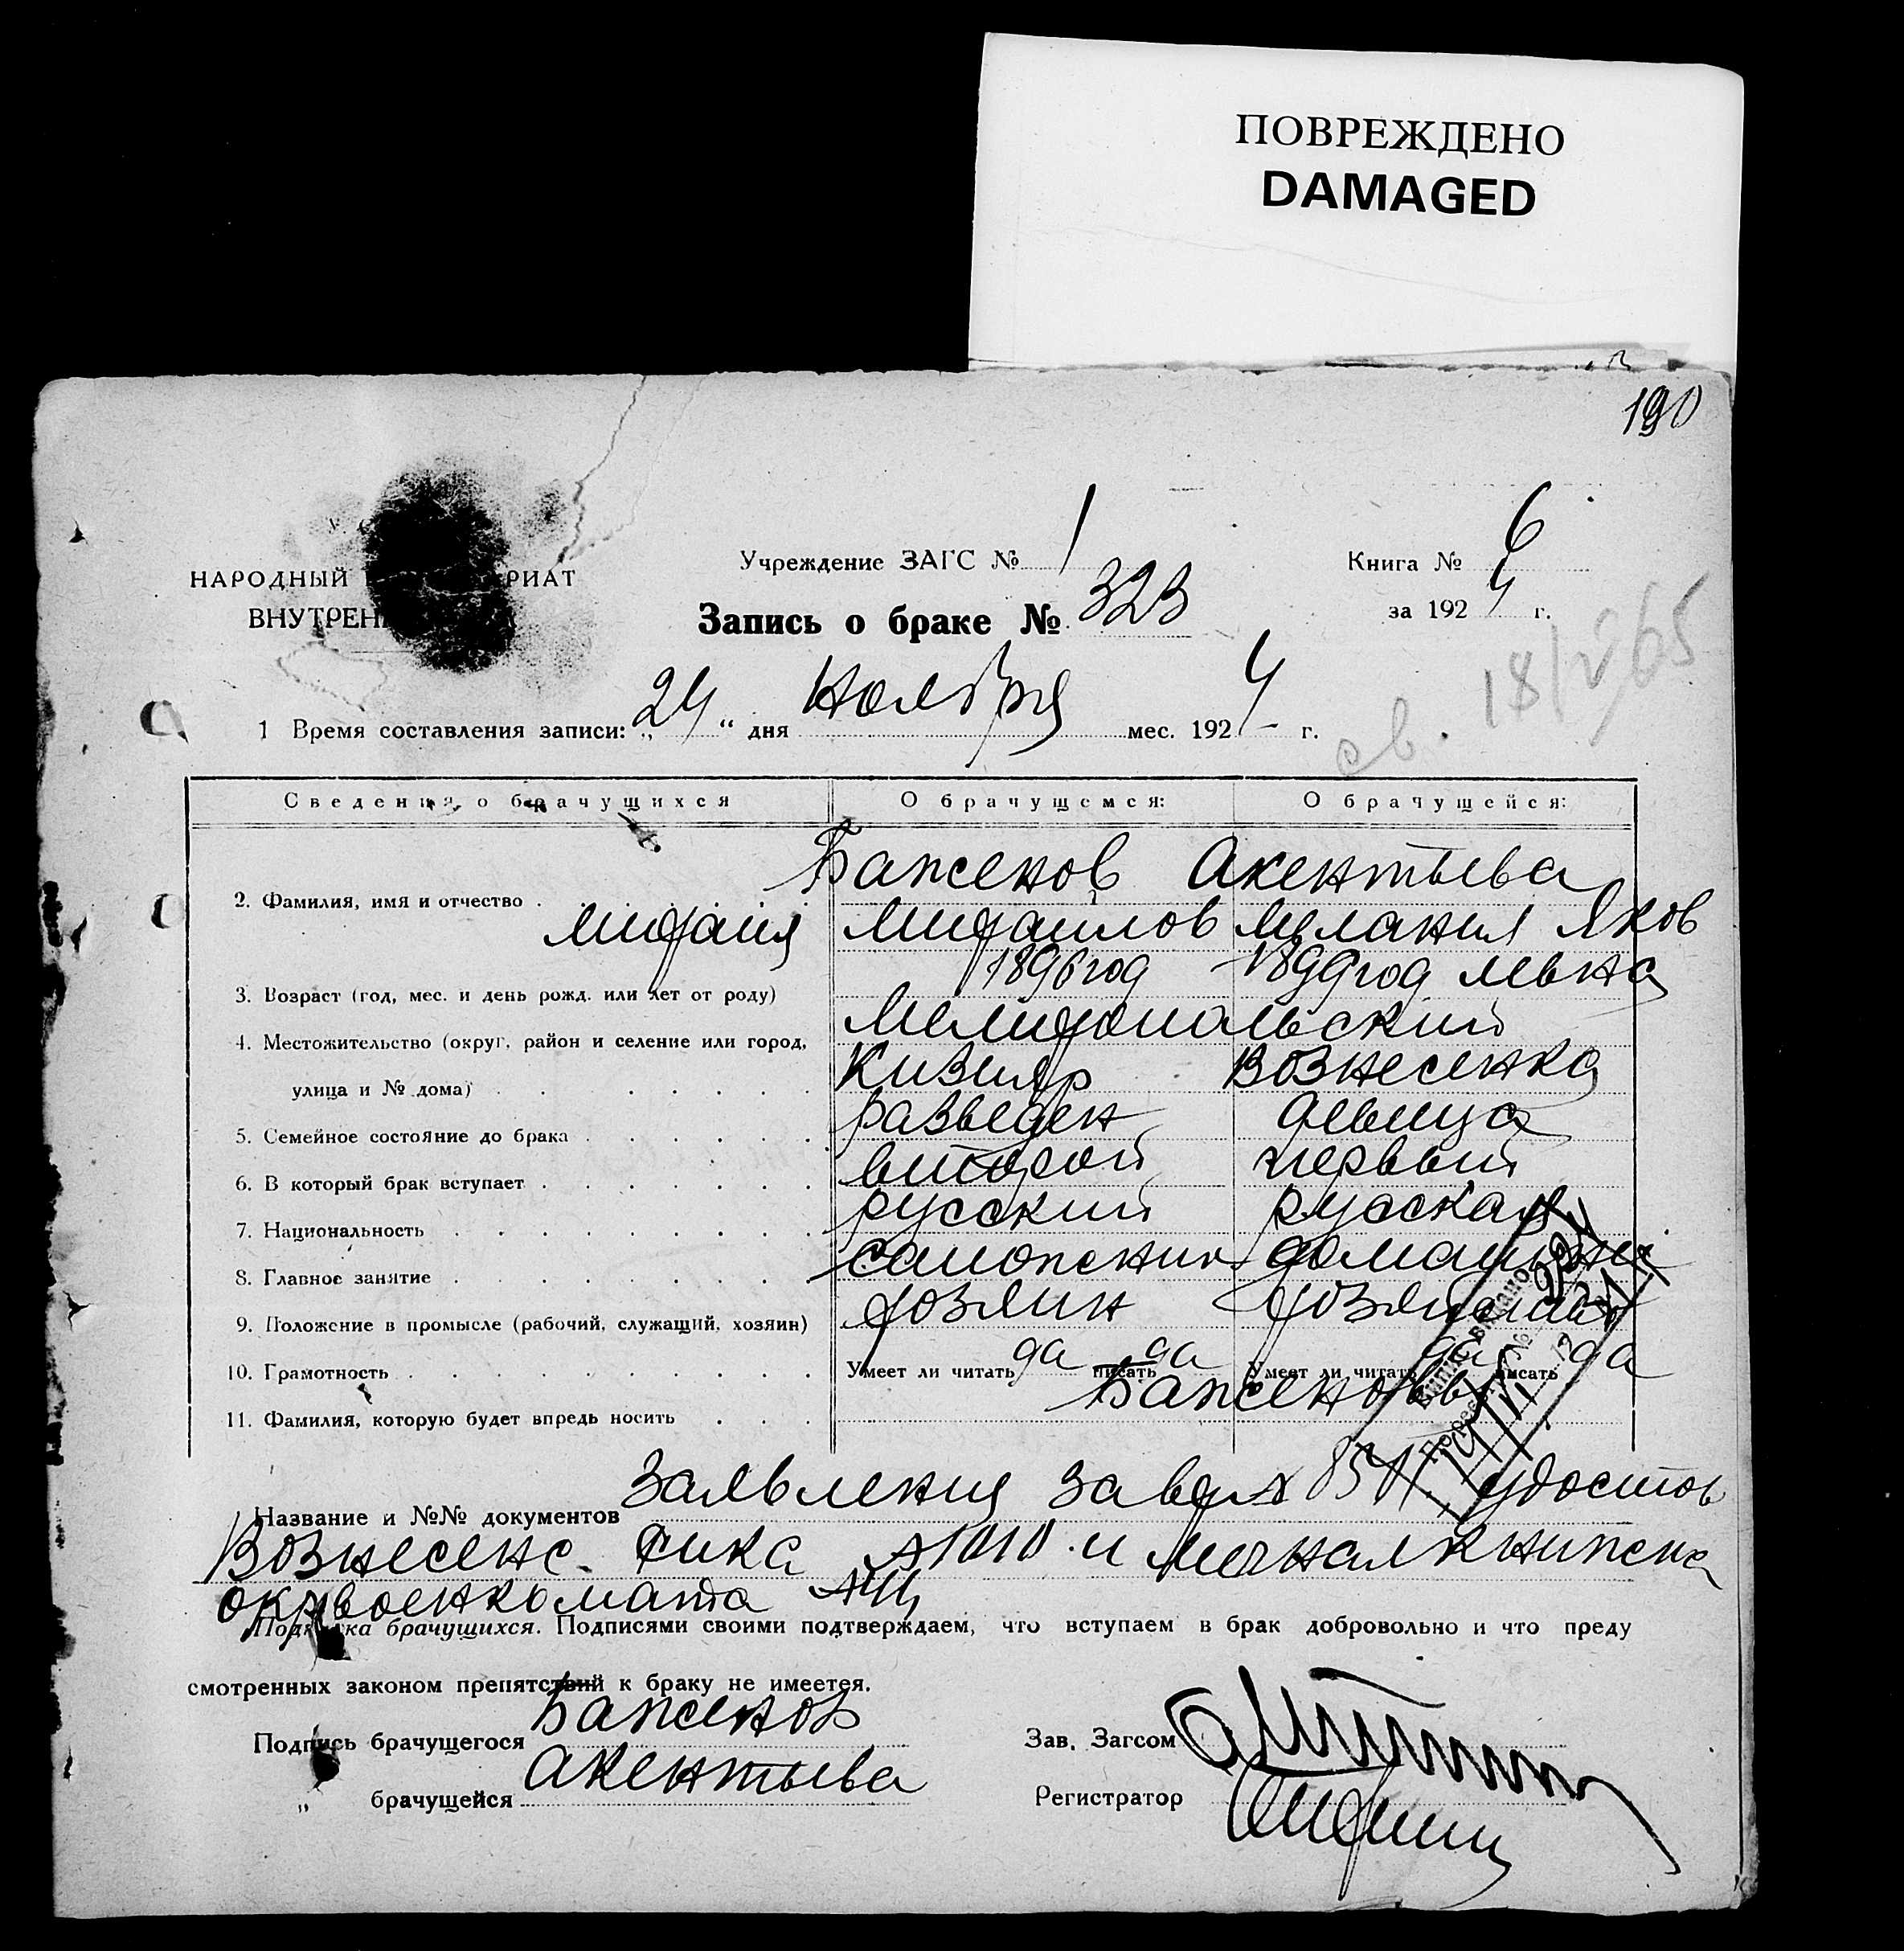 ПОВРЕЖДЕНО
DAMAGED
190
Учреждение ЗАГС № 1
Книга № 6
НАРОДНЫЙ РИАТ
ВНУТРЕН
Запись о браке № 323
за 1924 г.
св. 18/V 65
1 Время составления записи: „24" дня Ноября мес. 1924 г.
Сведения о брачущихся О брачущемся: О брачущейся:
Баженов Акентьева
2. Фамилия, имя и отчество
Михаил Михаилов Мелания Яков
1896 год 1899 год левна
3. Возраст (год, мес. и день рожд. или лет от роду)
Мелитопольский
4. Местожительство (округ, район и селение или город,
Кизияр Вознесенка
улица и № дома)
разведен девица
5. Семейное состояние до брака
второй первый
6. В который брак вступает
русский русская
7. Национальность
сапожник домашняя
8. Главное занятие
хозяин хозяйство
9. Положение в промысле (рабочий, служащий, хозяин)
10. Грамотность Умеет ли читать да писать да Умеет ли читать да писать да
Баженовы
11. Фамилия, которую будет впредь носить
Заявления удостов
Название и №№ документов
Вознесенс. рика №1010 и личная книжка
окрвоенкомата
Подписка брачущихся. Подписями своими подтверждаем, что вступаем в брак добровольно и что преду
смотренных законом препятствий к браку не имеется.
Подпись брачущегося Баженов
Зав. Загсом
„ брачущейся Акентьева
Регистратор